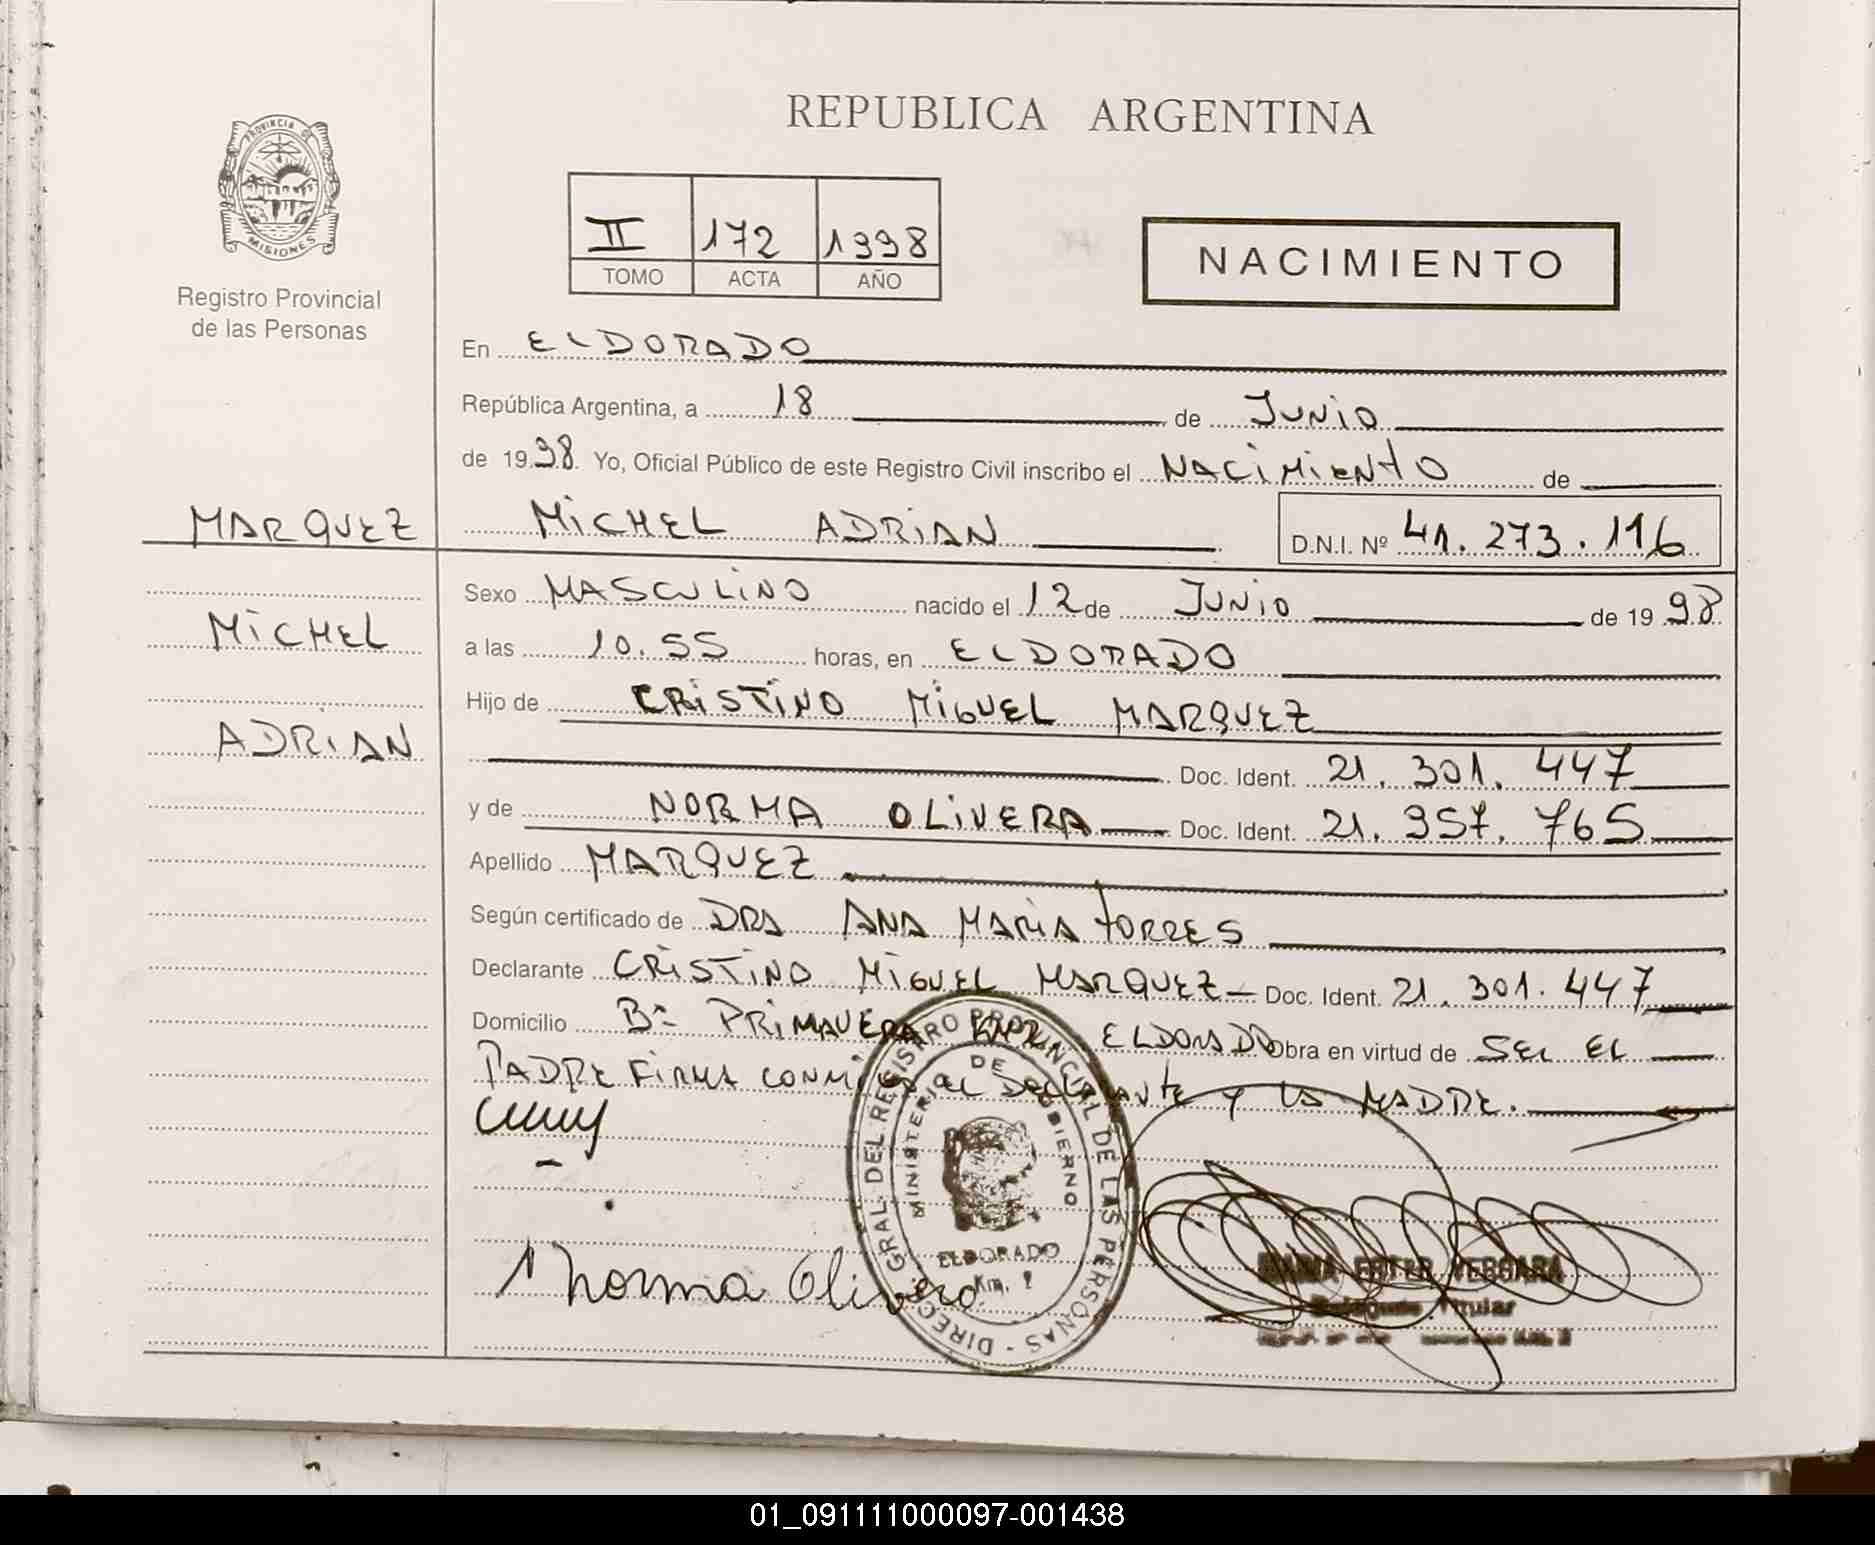 REPUBLICA ARGENTINA
PROVINCIA DE
MISIONES
Registro Provincial
de las Personas
II 172 1998
TOMO ACTA AÑO
NACIMIENTO
En ELDORADO
República Argentina, a 18 de JUNIO
de 1998. Yo, Oficial Público de este Registro Civil inscribo el NACIMIENTO de
MARQUEZ
MICHEL
ADRIAN
MICHEL ADRIAN D.N.I. Nº 41.273.116
Sexo MASCULINO nacido el 12 de JUNIO de 1998
a las 10.55 horas, en ELDORADO
Hijo de CRISTINO MIGUEL MARQUEZ
Doc. Ident. 21.301.447
y de NORMA OLIVERA Doc. Ident. 21.957.765
Apellido MARQUEZ
Según certificado de DRA ANA MARIA TORRES
Declarante CRISTINO MIGUEL MARQUEZ Doc. Ident. 21.301.447
Domicilio Bº PRIMAVERA ELDORADO Obra en virtud de SER EL
PADRE FIRMA CONMIGO EL DECLARANTE Y LA MADRE.
DIRECC. GRAL. DEL REGISTRO PROVINCIAL DE LAS PERSONAS
MINISTERIO DE GOBIERNO
ELDORADO
Km.
Norma Olivera
MARIA ESTER VERGARA
Delegada Titular
01_091111000097-001438